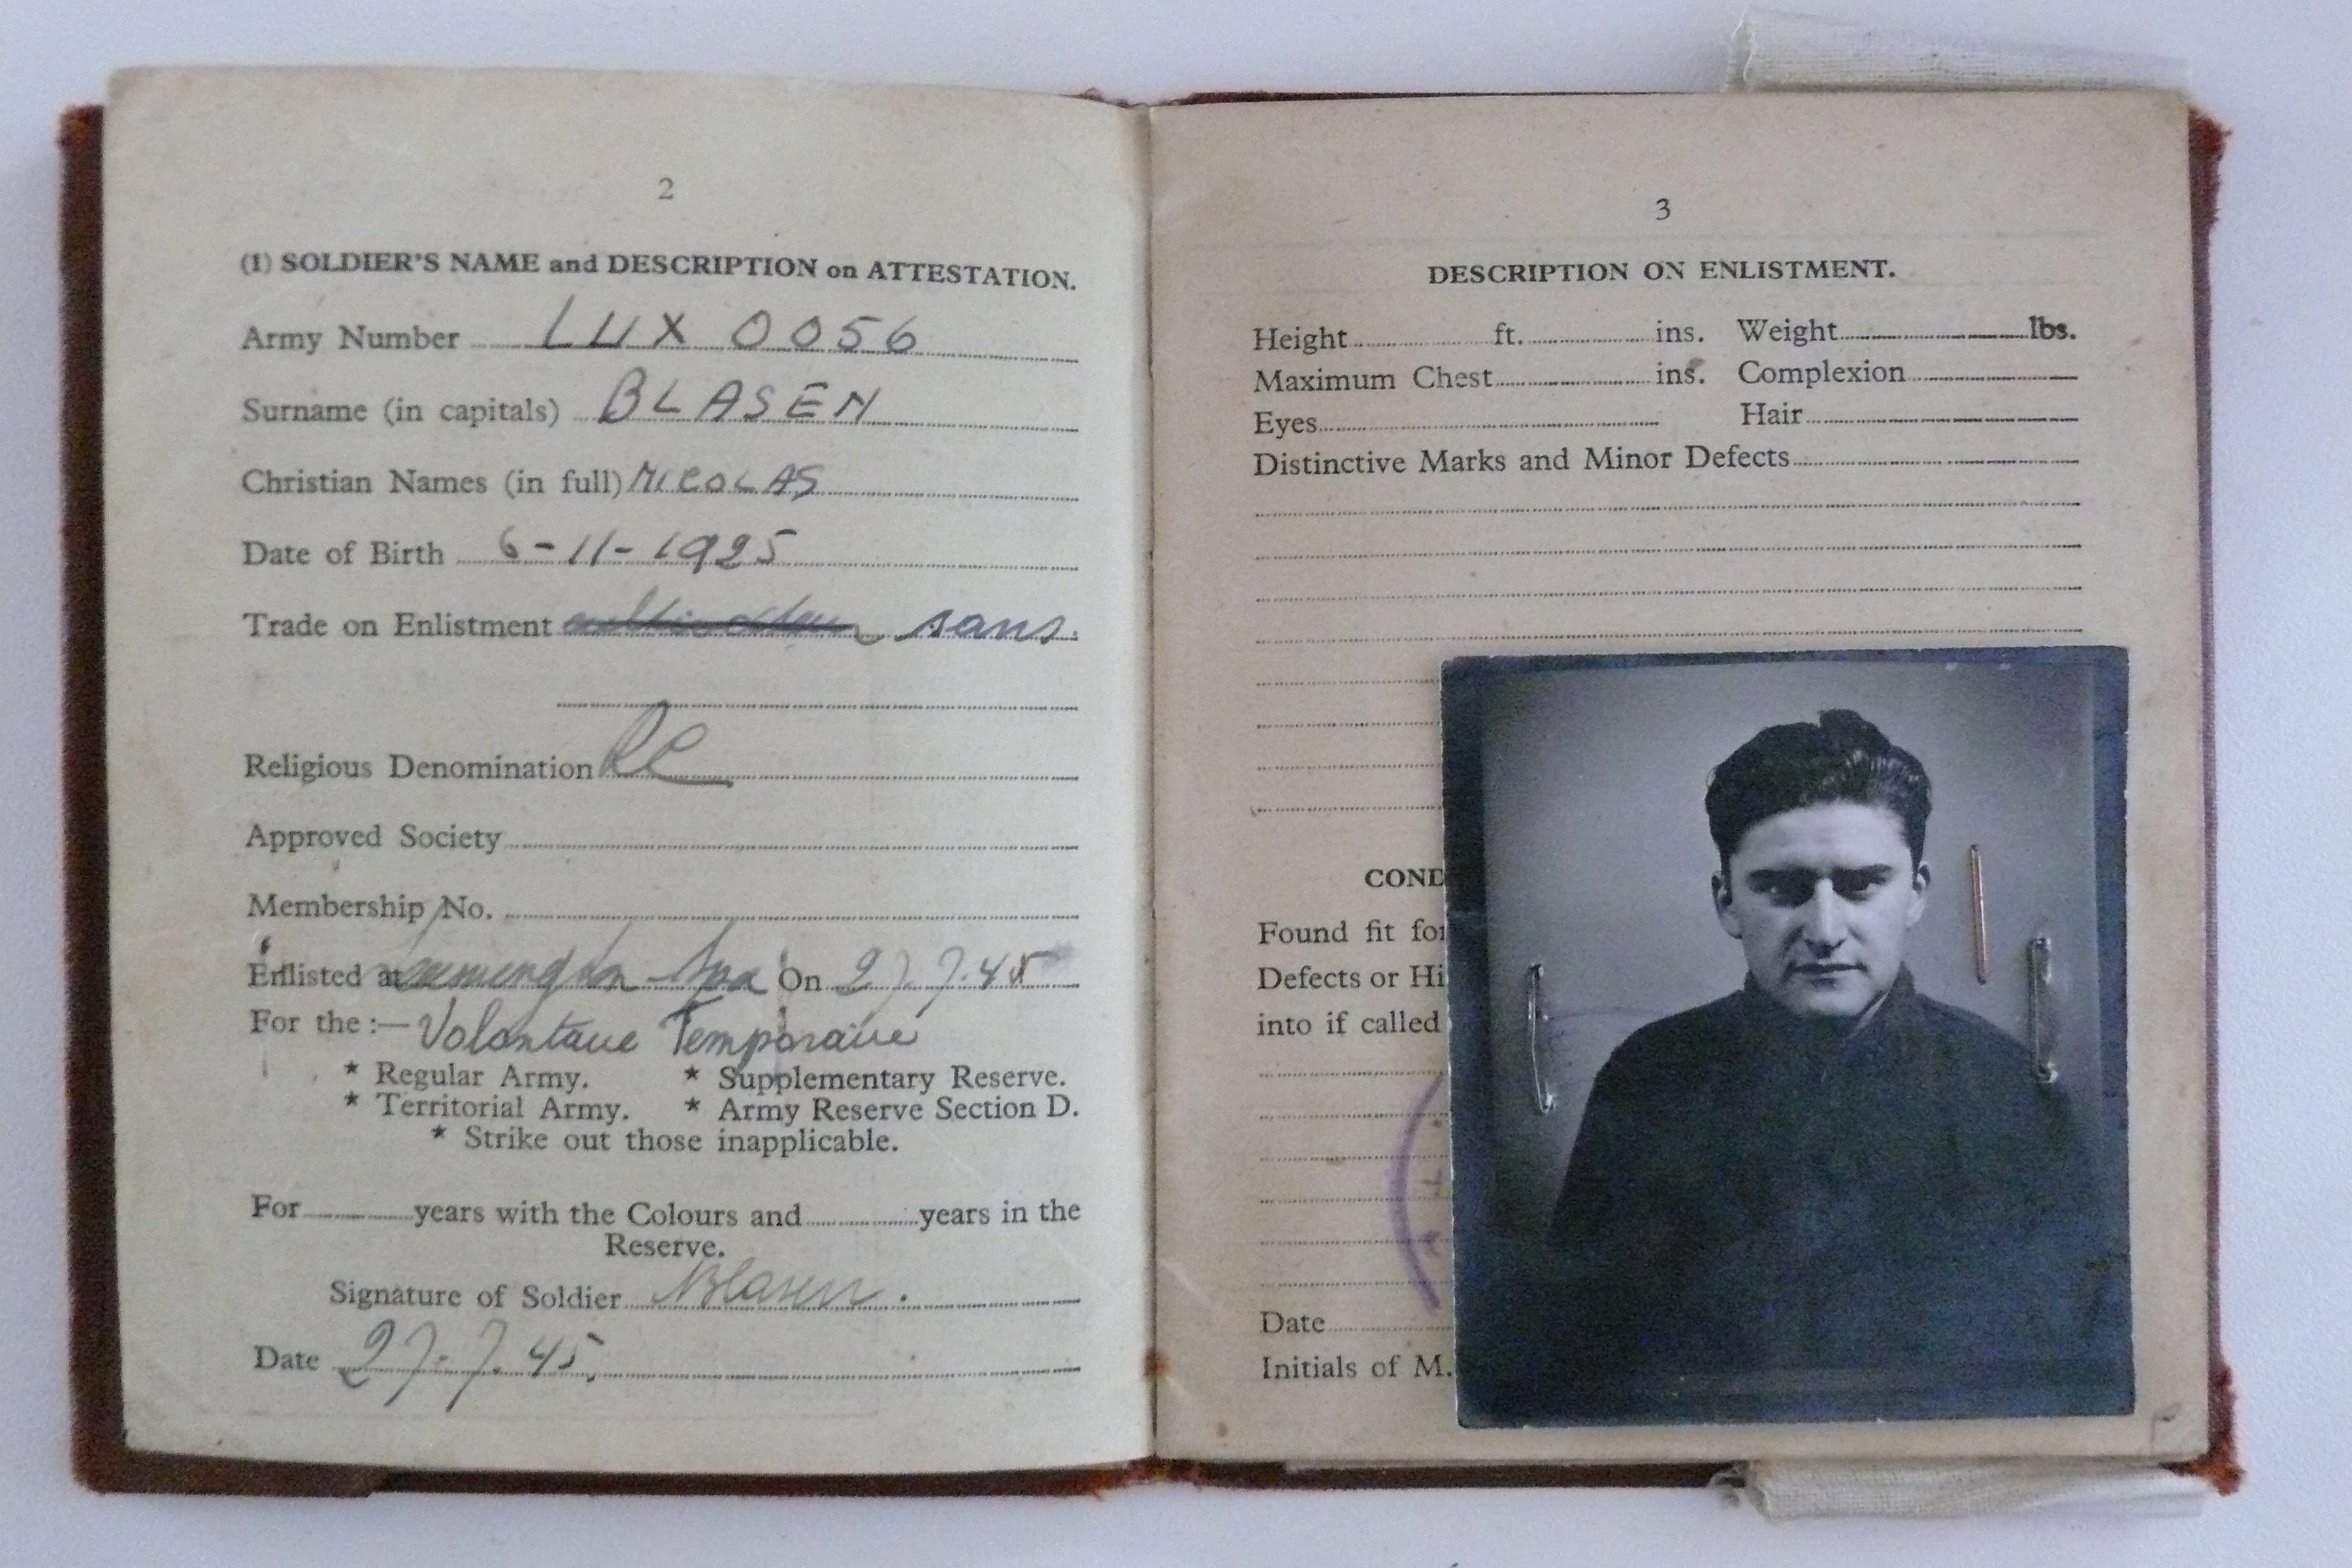 2
(1) SOLDIER'S NAME and DESCRIPTION on ATTESTATION.
Army Number LUX 0056
Surname (in capitals) BLASEN
Christian Names (in full) NICOLAS
Date of Birth 6-11-1925
Trade on Enlistment sans.
Religious Denomination RC
Approved Society
Membership No.
Enlisted at Leamington-Spa On 27.7.45
For the:— Volontaire Temporaire
* Regular Army. * Supplementary Reserve.
* Territorial Army. * Army Reserve Section D.
* Strike out those inapplicable.
For years with the Colours and years in the
Reserve.
Signature of Soldier NBlasen.
Date 27.7.45.
3
DESCRIPTION ON ENLISTMENT.
Height ft. ins. Weight lbs.
Maximum Chest ins. Complexion
Eyes Hair
Distinctive Marks and Minor Defects
COND
Found fit for
Defects or Hi
into if called
Date
Initials of M.